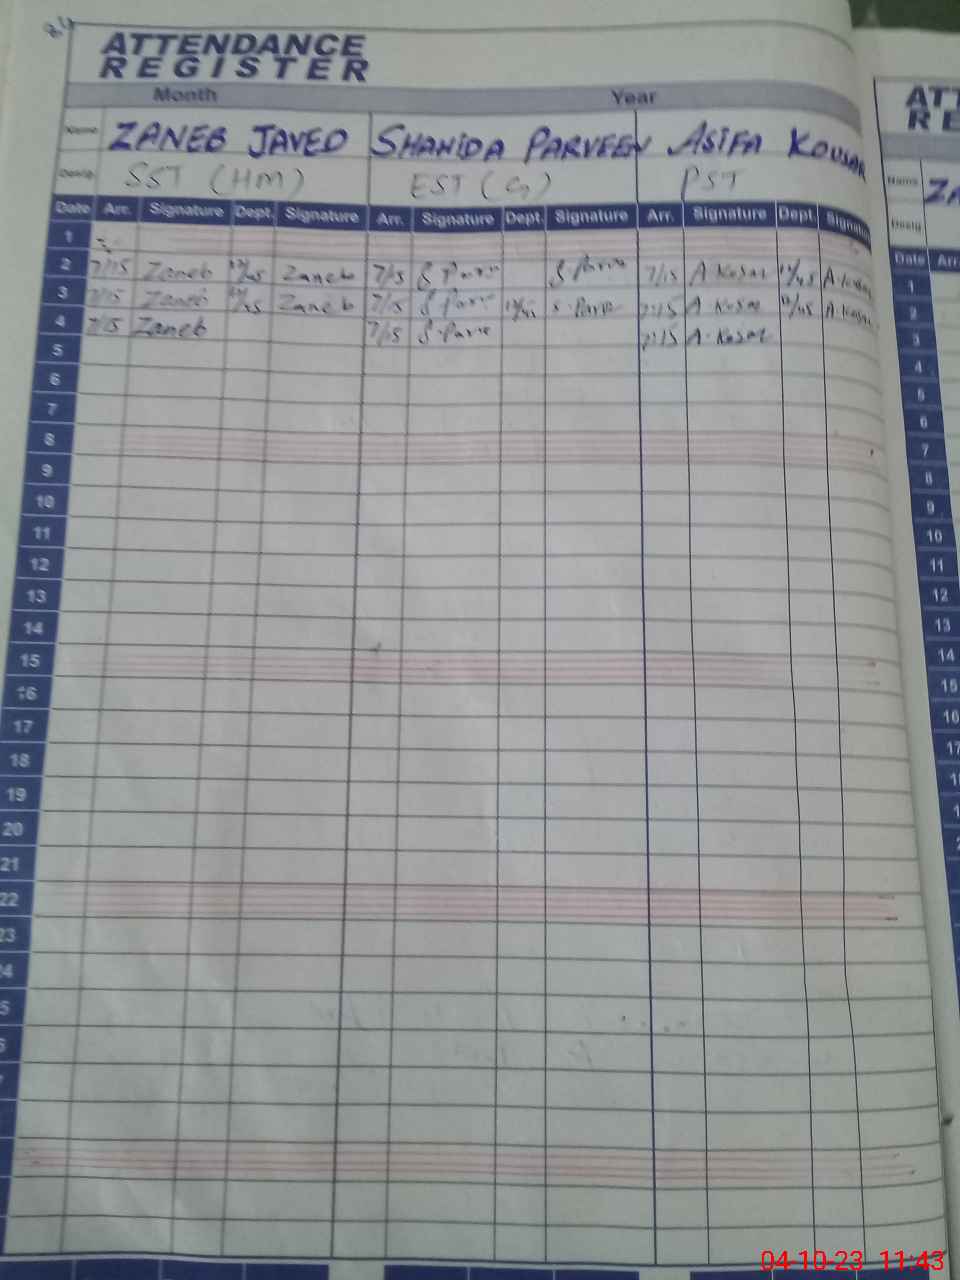 ATTENDANCE
REGISTER
Month Year
Name ZANEB JAVED SHAHIDA PARVEEN ASIFA KOUSAR
Desig SST (HM) EST (G) PST
Date Arr. Signature Dept. Signature Arr. Signature Dept. Signature Arr. Signature Dept. Signature
1
2 7/15 Zaneb 12/45 Zaneb 7/15 S Parv S Parv 7/15 A Kosar 12/45 A.Kosar
3 7/15 Zaneb 12/45 Zaneb 7/15 S Parv 12/45 S.Parv 7:15 A Kosar 12/45 A.Kosar
4 7/15 Zaneb 7/15 S.Parv 7:15 A.Kosar
5
6
7
8
9
10
11
12
13
14
15
16
17
18
19
20
21
22
23
24
ATT
RE
Name ZA
Desig
Date Arr
1
2
3
4
5
6
7
8
9
10
11
12
13
14
15
16
17
04-10-23 11:43